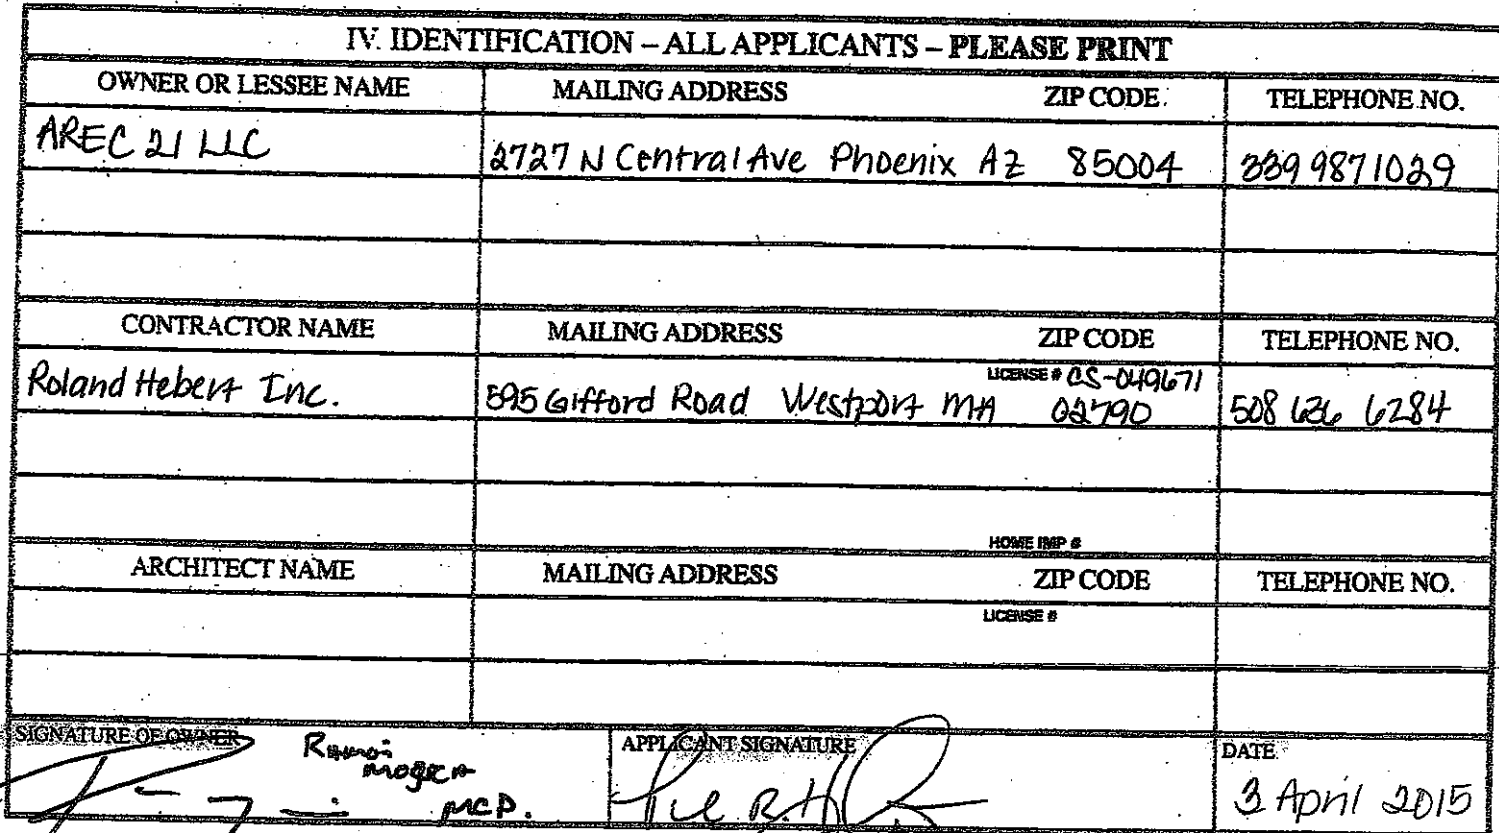 IV. IDENTIFICATION – ALL APPLICANTS – PLEASE PRINT
OWNER OR LESSEE NAME MAILING ADDRESS ZIP CODE TELEPHONE NO.
AREC 21 LLC 2727 N Central Ave Phoenix AZ 85004 339 9871029
CONTRACTOR NAME MAILING ADDRESS ZIP CODE TELEPHONE NO.
LICENSE # CS-049671
Roland Hebert Inc. 595 Gifford Road Westport MA 02790 508 636 6284
HOME IMP #
ARCHITECT NAME MAILING ADDRESS ZIP CODE TELEPHONE NO.
LICENSE #
SIGNATURE OF OWNER APPLICANT SIGNATURE DATE
3 April 2015